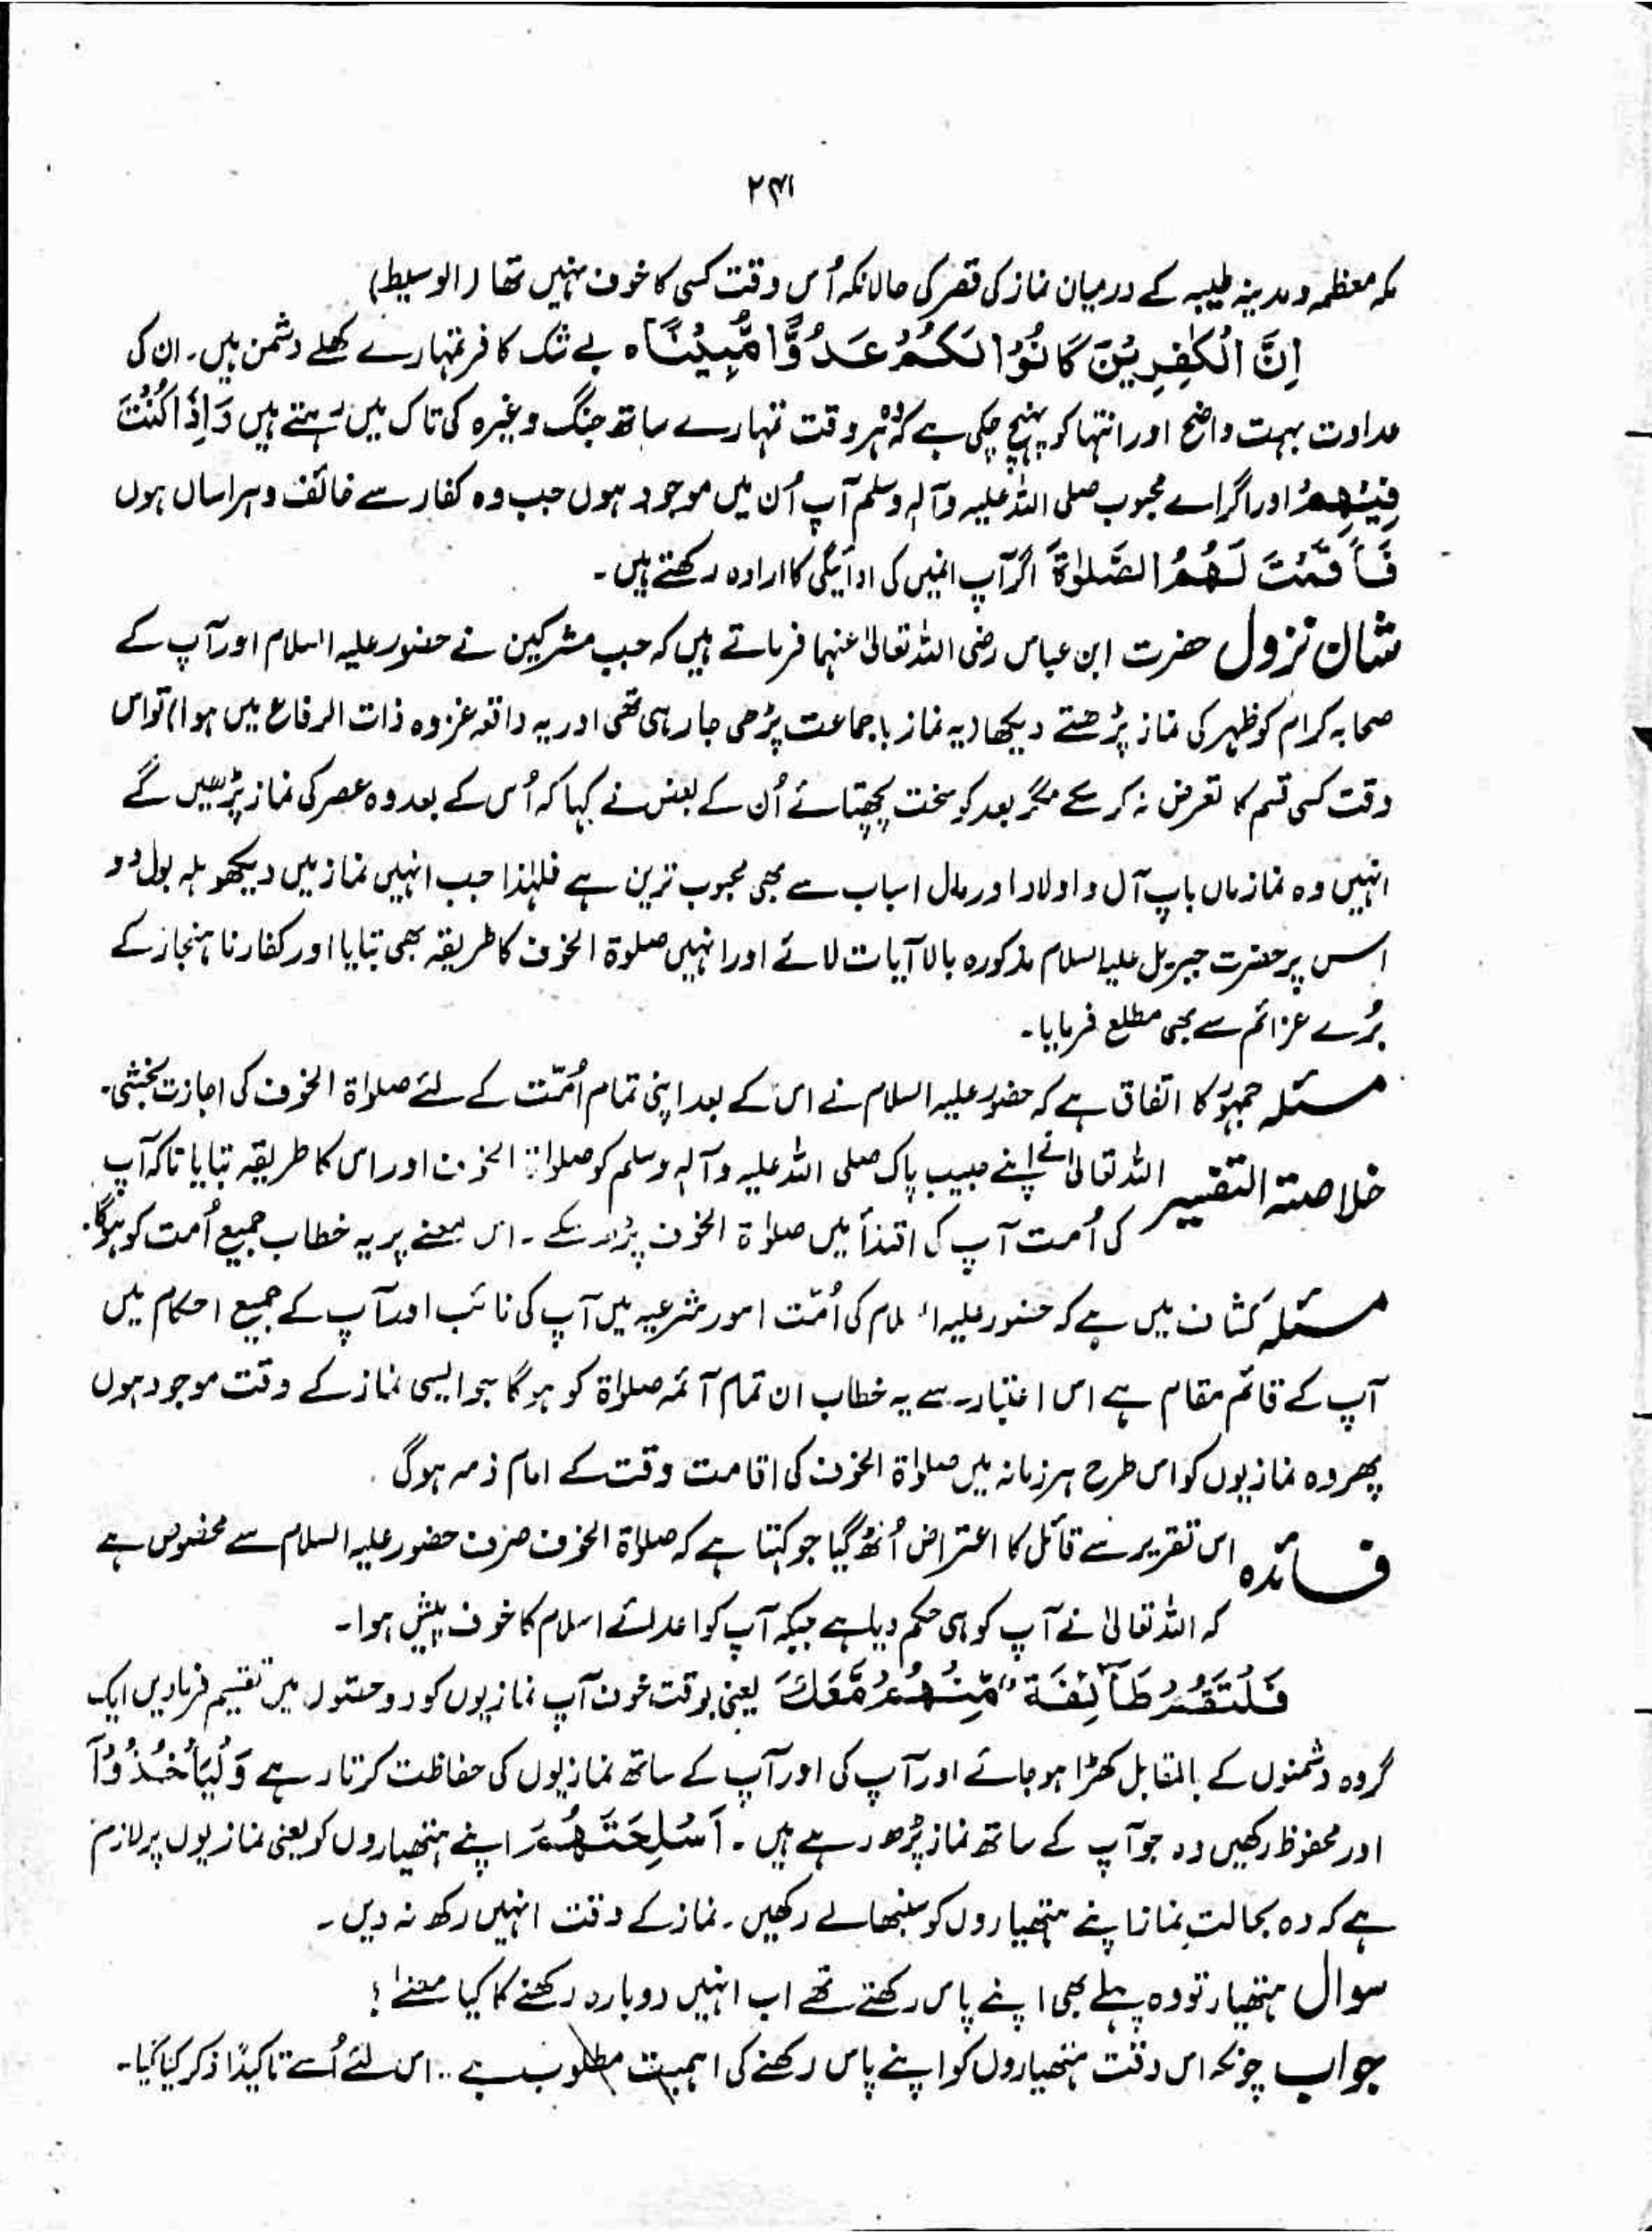 ۲۴۱
مکہ معظمہ و مدینہ طیبہ کے درمیان نماز کی قصر کی حالانکہ اُس وقت کسی کا خوف نہیں تھا (الوسیط)
اِنَّ الْكٰفِرِیْنَ كَانُوْا لَكُمْ عَدُوًّا مُّبِیْنًا ہ بے شک کافر تمہارے کھلے دشمن ہیں۔ ان کی
عداوت بہت واضح اور انتہا کو پہنچ چکی ہے کہ وہ ہر وقت تمہارے ساتھ جنگ وغیرہ کی تاک میں رہتے ہیں وَاِذَا كُنْتَ
فِیْهِمْ اور اگر اے محبوب صلی اللہ علیہ وآلہٖ وسلم آپ اُن میں موجود ہوں جب وہ کفار سے خائف و ہراساں ہوں
فَاَقَمْتَ لَهُمُ الصَّلٰوةَ اگر آپ انہیں کی ادائیگی کا ارادہ رکھتے ہیں۔
شان نزول حضرت ابن عباس رضی اللہ تعالیٰ عنہما فرماتے ہیں کہ جب مشرکین نے حضور علیہ السلام اور آپ کے
صحابہ کرام کو ظہر کی نماز پڑھتے دیکھا (یہ نماز باجماعت پڑھی جا رہی تھی اور یہ واقعہ غزوہ ذات الرفاع میں ہوا) تو اس
وقت کسی قسم کا تعرض نہ کر سکے مگر بعد کو سخت پچھتائے اُن کے بعض نے کہا کہ اُس کے بعد وہ عصر کی نماز پڑھیں گے
انہیں وہ نماز ماں باپ آل و اولاد اور مال اسباب سے بھی محبوب ترین ہے فلہٰذا جب انہیں نماز میں دیکھو ہلہ بول دو
اس پر حضرت جبریل علیہ السلام مذکورہ بالا آیات لائے اور انہیں صلوۃ الخوف کا طریقہ بھی بتایا اور کفار ناہنجاز کے
بُرے عزائم سے بھی مطلع فرمایا۔
مسئلہ جمہور کا اتفاق ہے کہ حضور علیہ السلام نے اس کے بعد اپنی تمام اُمّت کے لئے صلواۃ الخوف کی اجازت بخشی۔
خلاصۃ التفسیر اللہ تعالیٰ نے اپنے حبیب پاک صلی اللہ علیہ وآلہٖ وسلم کو صلواۃ الخوف اور اس کا طریقہ بتایا تاکہ آپ
کی اُمت آپ کی اقتدأ میں صلوٰۃ الخوف پڑھ سکے۔ اس معنے پر یہ خطاب جمیع اُمت کو ہوگا۔
مسئلہ کشاف میں ہے کہ حضور علیہ السلام کی اُمّت امور شرعیہ میں آپ کی نائب اور آپ کے جمیع احکام میں
آپ کے قائم مقام ہے اس اعتبار سے یہ خطاب ان تمام آئمہ صلواۃ کو ہوگا جو ایسی نماز کے وقت موجود ہوں
پھر وہ نمازیوں کو اس طرح ہر زمانہ میں صلواۃ الخوف کی اقامت وقت کے امام ذمہ ہوگی۔
فائدہ اس تقریر سے قائل کا اعتراض اُٹھ گیا جو کہتا ہے کہ صلاۃ الخوف صرف حضور علیہ السلام سے مخصوص ہے
کہ اللہ تعالیٰ نے آپ کو ہی حکم دیا ہے جبکہ آپ کو اعدائے اسلام کا خوف پیش ہوا۔
فَلْتَقُمْ طَآئِفَةٌ مِّنْهُمْ مَّعَكَ یعنی بوقت خوف آپ نمازیوں کو دو حصّوں میں تقسیم فرمادیں ایک
گروہ دشمنوں کے بالمقابل کھڑا ہو جائے اور آپ کی اور آپ کے ساتھ نمازیوں کی حفاظت کرتا رہے وَلْیَاْخُذُوْٓا
اور محفوظ رکھیں وہ جو آپ کے ساتھ نماز پڑھ رہے ہیں۔ اَسْلِحَتَهُمْ اپنے ہتھیاروں کو یعنی نمازیوں پر لازم
ہے کہ وہ بحالتِ نماز اپنے ہتھیاروں کو سنبھالے رکھیں۔ نماز کے وقت انہیں رکھ نہ دیں۔
سوال ہتھیار تو وہ پہلے بھی اپنے پاس رکھتے تھے اب انہیں دوبارہ رکھنے کا کیا معنے؟
جواب چونکہ اس وقت ہتھیاروں کو اپنے پاس رکھنے کی اہمیت مطلوب ہے۔ اس لئے اُسے تاکیدًا ذکر کیا گیا۔